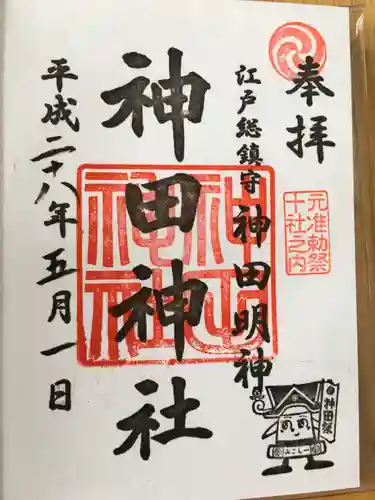 奉拝
元准勅祭
十社之内
江戸総鎮守 神田明神
神田神社
神田神社
平成二十八年五月一日
神田祭
みこしー